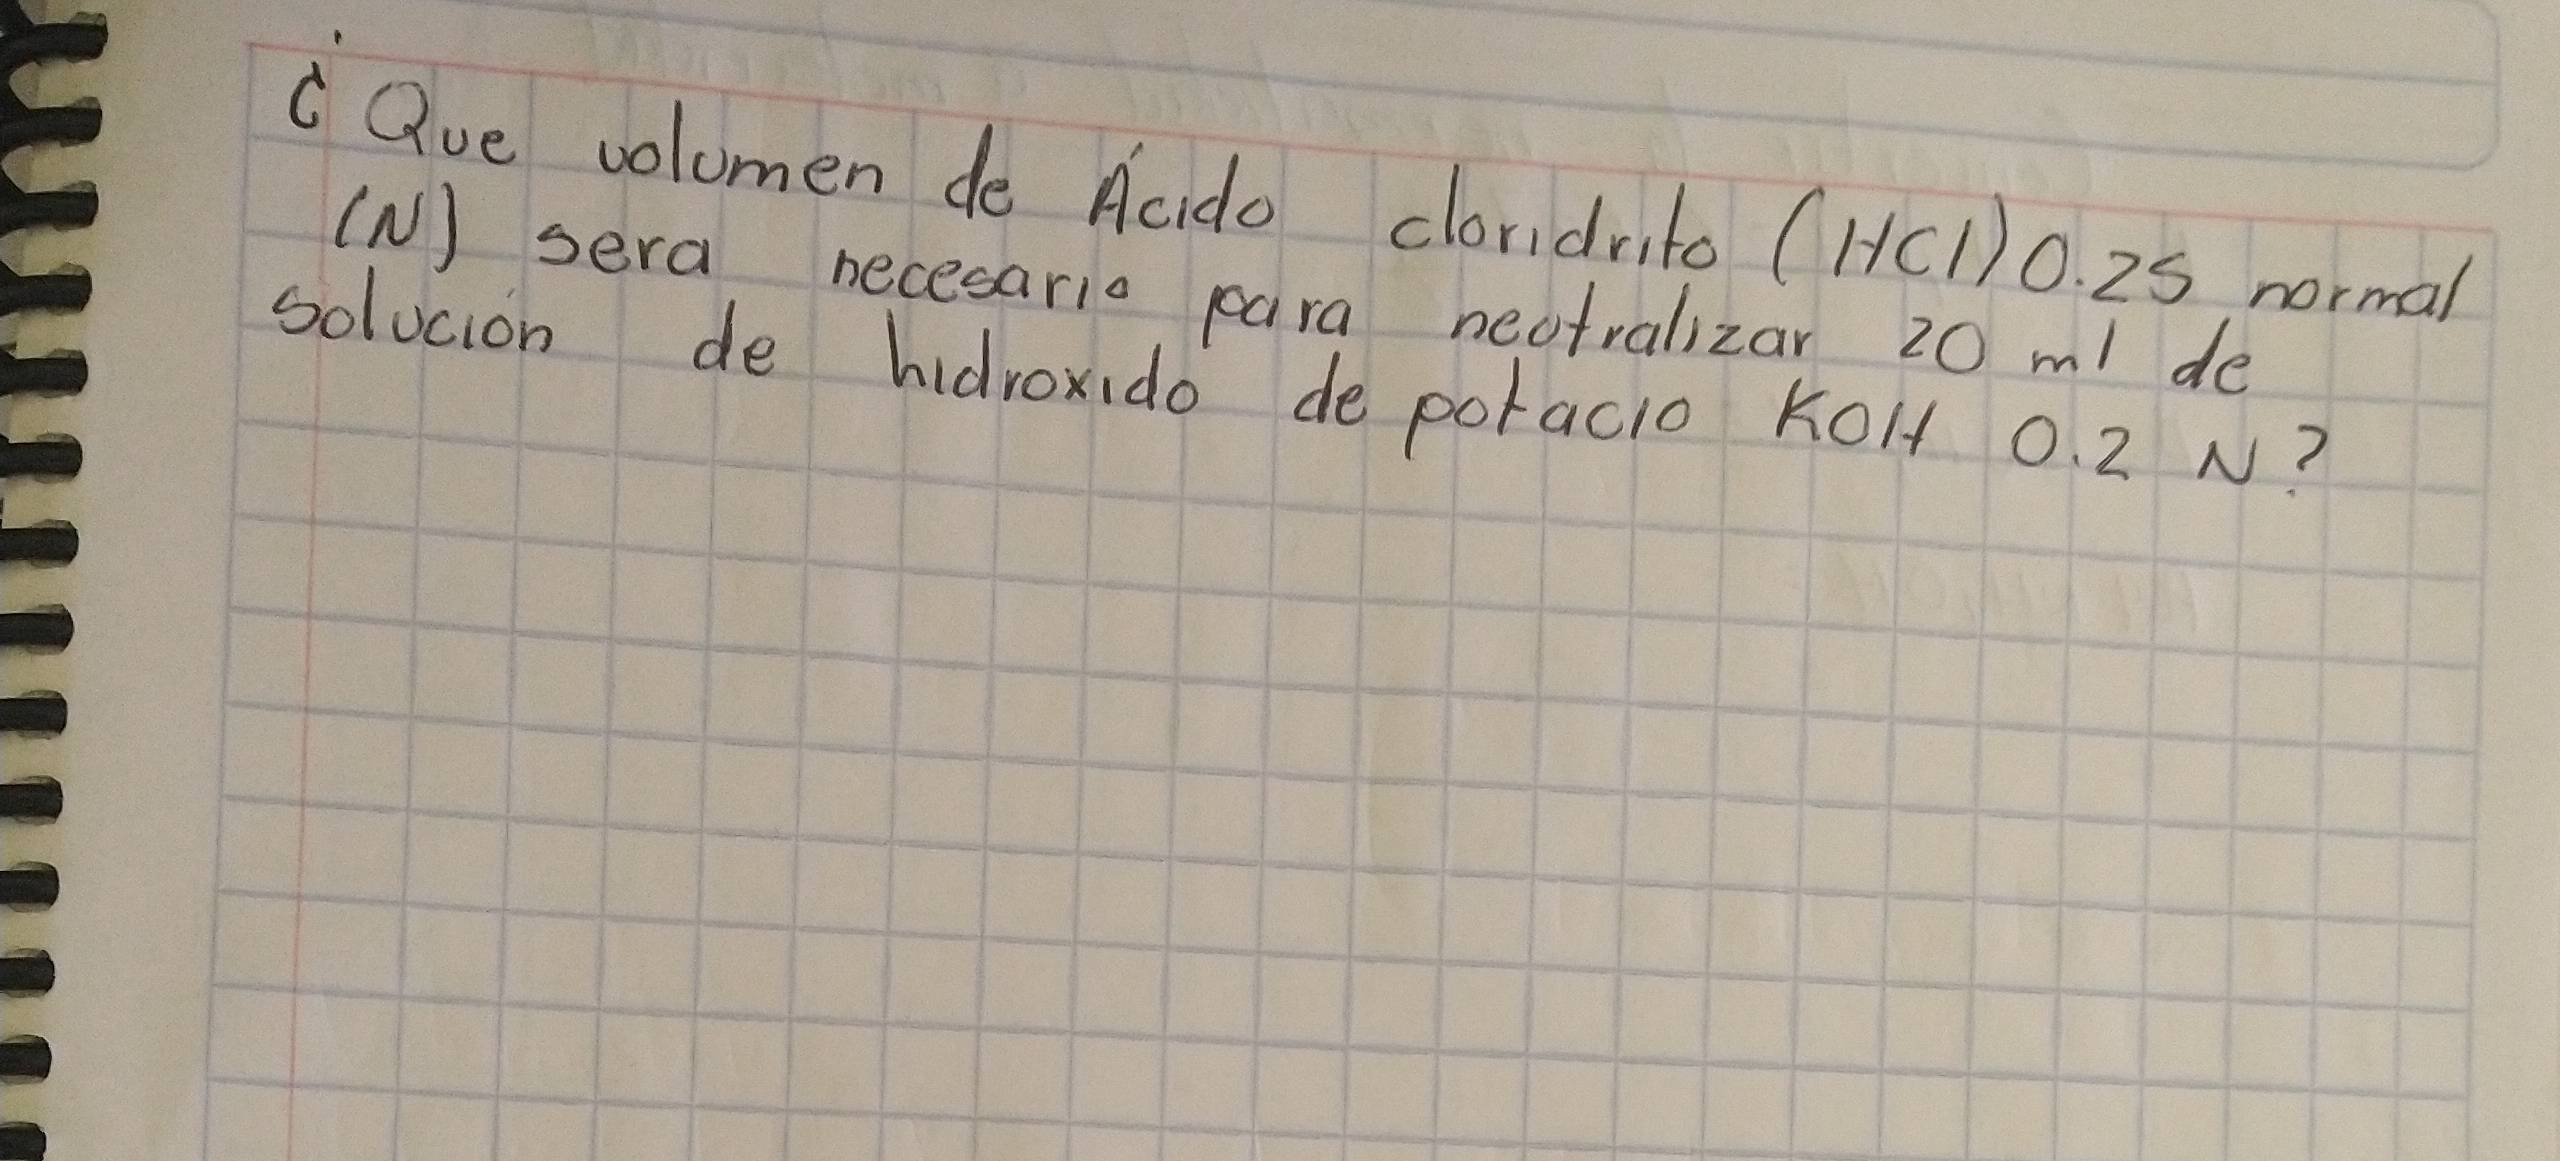 ¿Que volumen de Ácido cloridrito (HCl) 0.25 normal
(N) sera necesario para neutralizar 20 ml de
solución de hidroxido de potacio KOH 0.2 N?